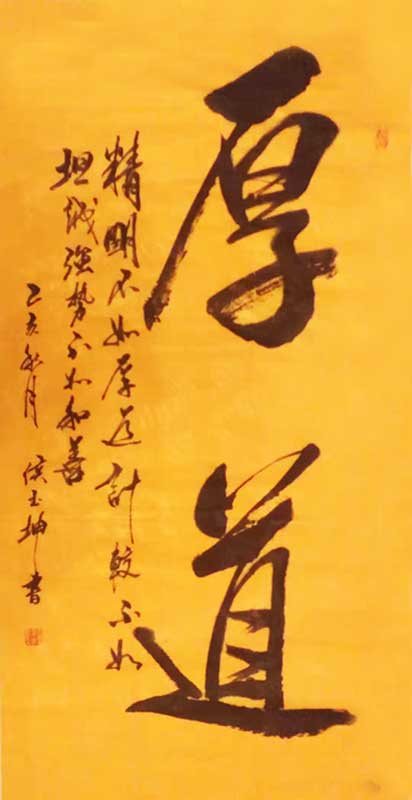 厚道
精明不如厚道计较不如
坦诚强势不如和善
乙亥秋月 侯玉坤书